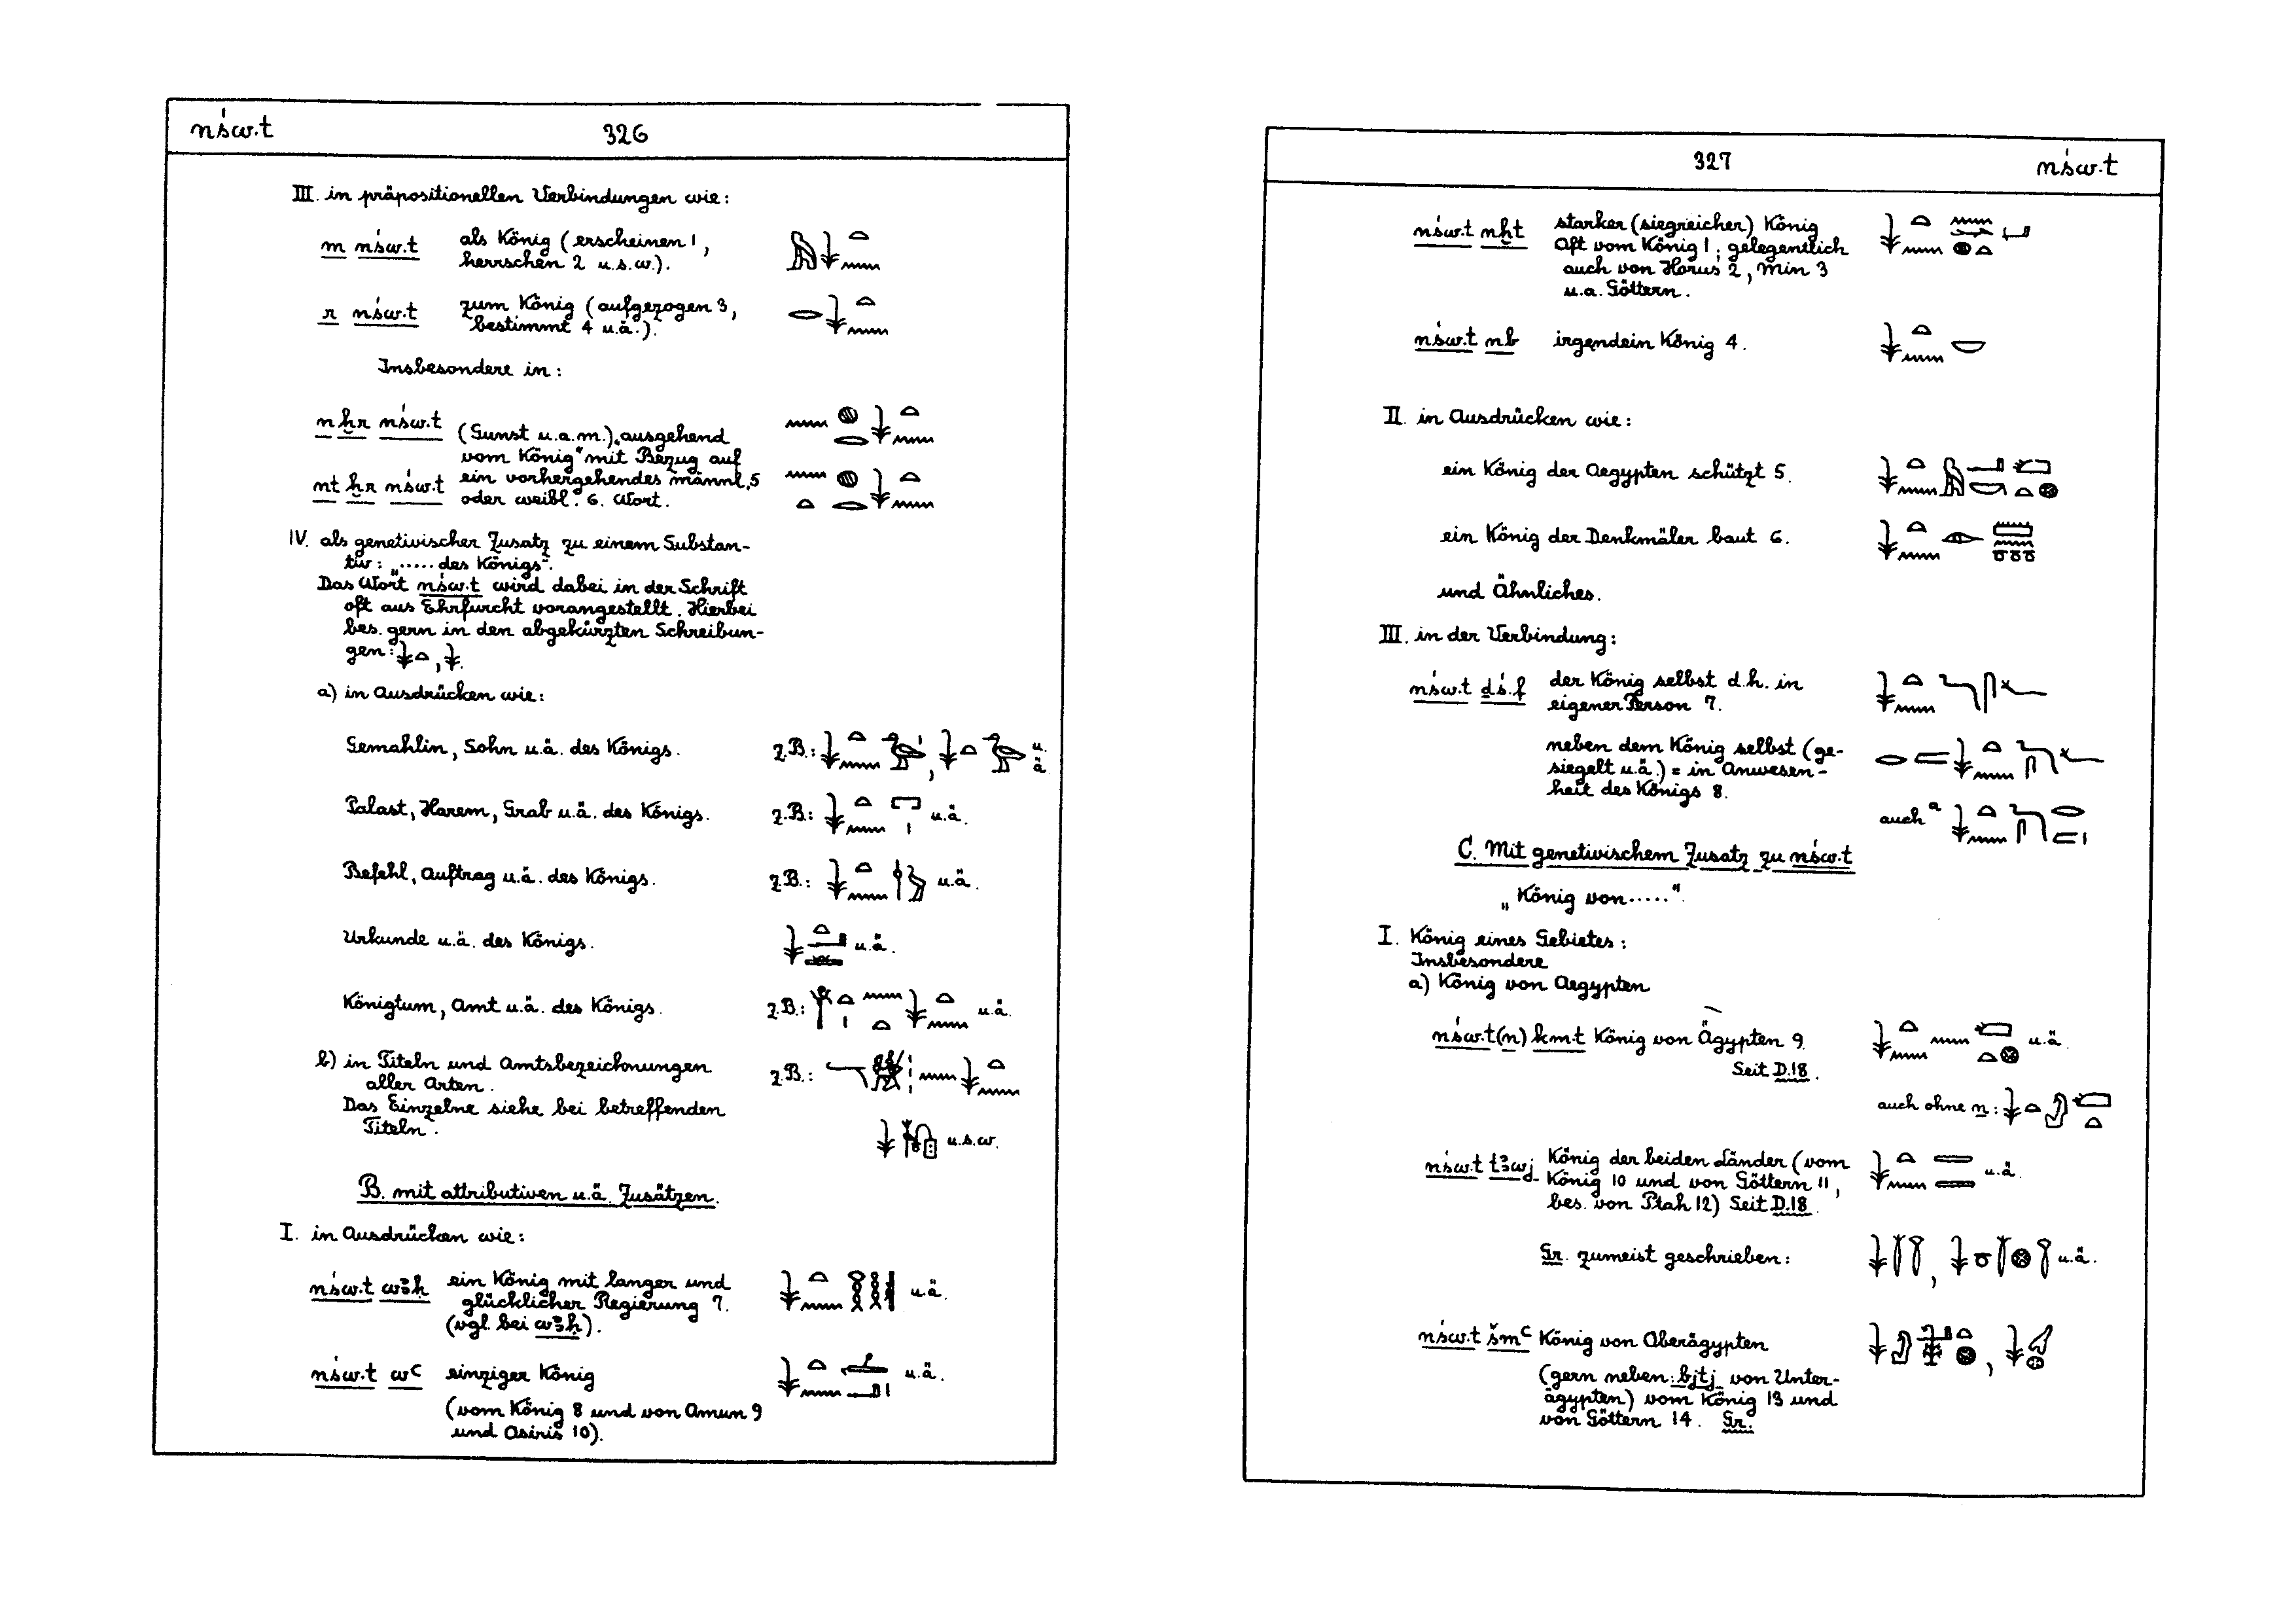 nśw.t 326
III. in präpositionellen Verbindungen wie:
m nśw.t als König (erscheinen 1,
herrschen 2 u.s.w.).
r nśw.t zum König (aufgezogen 3,
bestimmt 4 u.ä.).
Insbesondere in:
n ḫr nśw.t (Gunst u.a.m.) „ausgehend
vom König“ mit Bezug auf
nt ḫr nśw.t ein vorhergehendes männl. 5
oder weibl. 6. Wort.
IV. als genetivischer Zusatz zu einem Substan-
tiv: „..... des Königs“.
Das Wort nśw.t wird dabei in der Schrift
oft aus Ehrfurcht vorangestellt. Hierbei
bes. gern in den abgekürzten Schreibun-
gen: 𓇓𓏏, 𓇓.
a) in Ausdrücken wie:
Gemahlin, Sohn u.ä. des Königs. z.B.: , u.ä.
Palast, Harem, Grab u.ä. des Königs. z.B.: u.ä.
Befehl, Auftrag u.ä. des Königs. z.B.: u.ä.
Urkunde u.ä. des Königs. u.ä.
Königtum, Amt u.ä. des Königs. z.B.: u.ä.
b) in Titeln und Amtsbezeichnungen z.B.:
aller Arten.
Das Einzelne siehe bei betreffenden
Titeln. u.s.w.
B. mit attributiven u.ä. Zusätzen.
I. in Ausdrücken wie:
nśw.t wꜣḥ ein König mit langer und u.ä.
glücklicher Regierung 7.
(vgl. bei wꜣḥ).
nśw.t wꜥ einziger König u.ä.
(vom König 8 und von Amun 9
und Osiris 10).
327 nśw.t
nśw.t nḫt starker (siegreicher) König
Oft vom König 1; gelegentlich
auch von Horus 2, Min 3
u.a. Göttern.
nśw.t nb irgendein König 4.
II. in Ausdrücken wie:
ein König der Aegypten schützt 5.
ein König der Denkmäler baut 6.
und Ähnliches.
III. in der Verbindung:
nśw.t ḏś.f der König selbst d.h. in
eigener Person 7.
neben dem König selbst (ge-
siegelt u.ä.) = in Anwesen-
heit des Königs 8.
auch a
C. Mit genetivischem Zusatz zu nśw.t
„König von.....“.
I. König eines Gebietes:
Insbesondere
a) König von Aegypten
nśw.t (n) km.t König von Ägypten 9. u.ä.
Seit D.18.
auch ohne n:
nśw.t tꜣwj König der beiden Länder (vom u.ä.
König 10 und von Göttern 11,
bes. von Ptah 12) Seit D.18.
Gr. zumeist geschrieben: , u.ä.
nśw.t šmꜥ König von Oberägypten ,
(gern neben: bjtj von Unter-
ägypten) vom König 13 und
von Göttern 14. Gr.